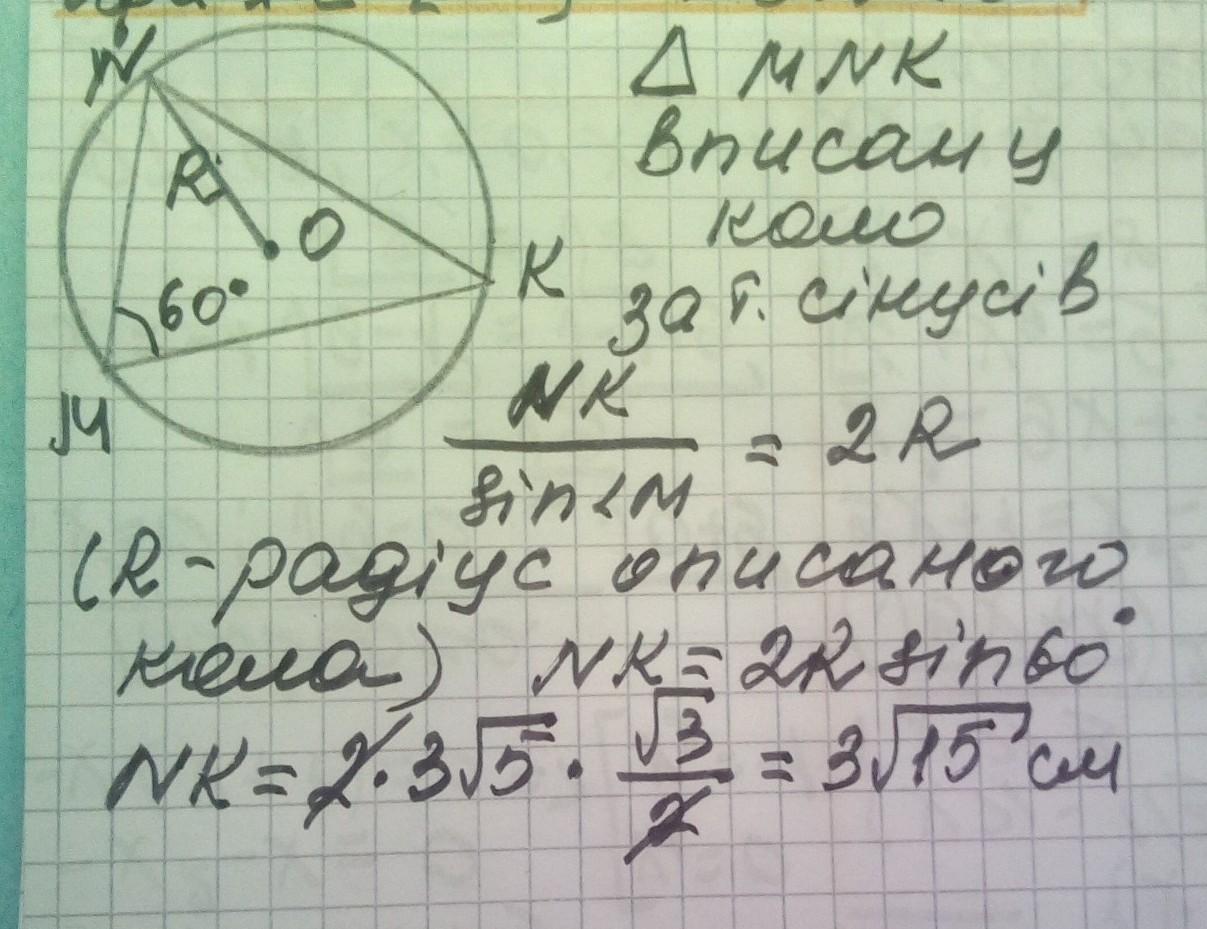 N
R
O
60°
K
M
Δ MNK
вписан у
коло
за т. сінусів
NK / sin∠M = 2R
(R - радіус описаного
кола) NK = 2R sin60°
NK = 2 · 3√5 · √3/2 = 3√15 см